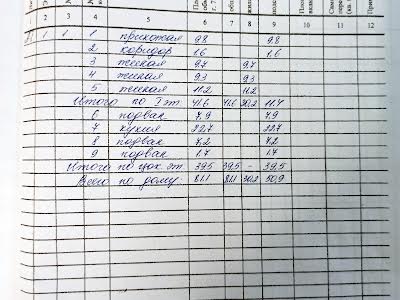 2 3 4 5 6 7 8 9 10 11 12
1 1 1 прихожая 9.8 9.8
2 коридор 1.6 1.6
3 жилая 9.7 9.7
4 жилая 9.3 9.3
5 жилая 11.2 11.2
Итого по 1 эт. 41.6 41.6 30.2 11.4
6 подвал 7.9 7.9
7 кухня 22.7 22.7
8 подвал 7.2 7.2
9 подвал 1.7 1.7
Итого по цок. эт. 39.5 39,5 - 39,5
Всего по дому 81.1 81.1 30.2 50,9